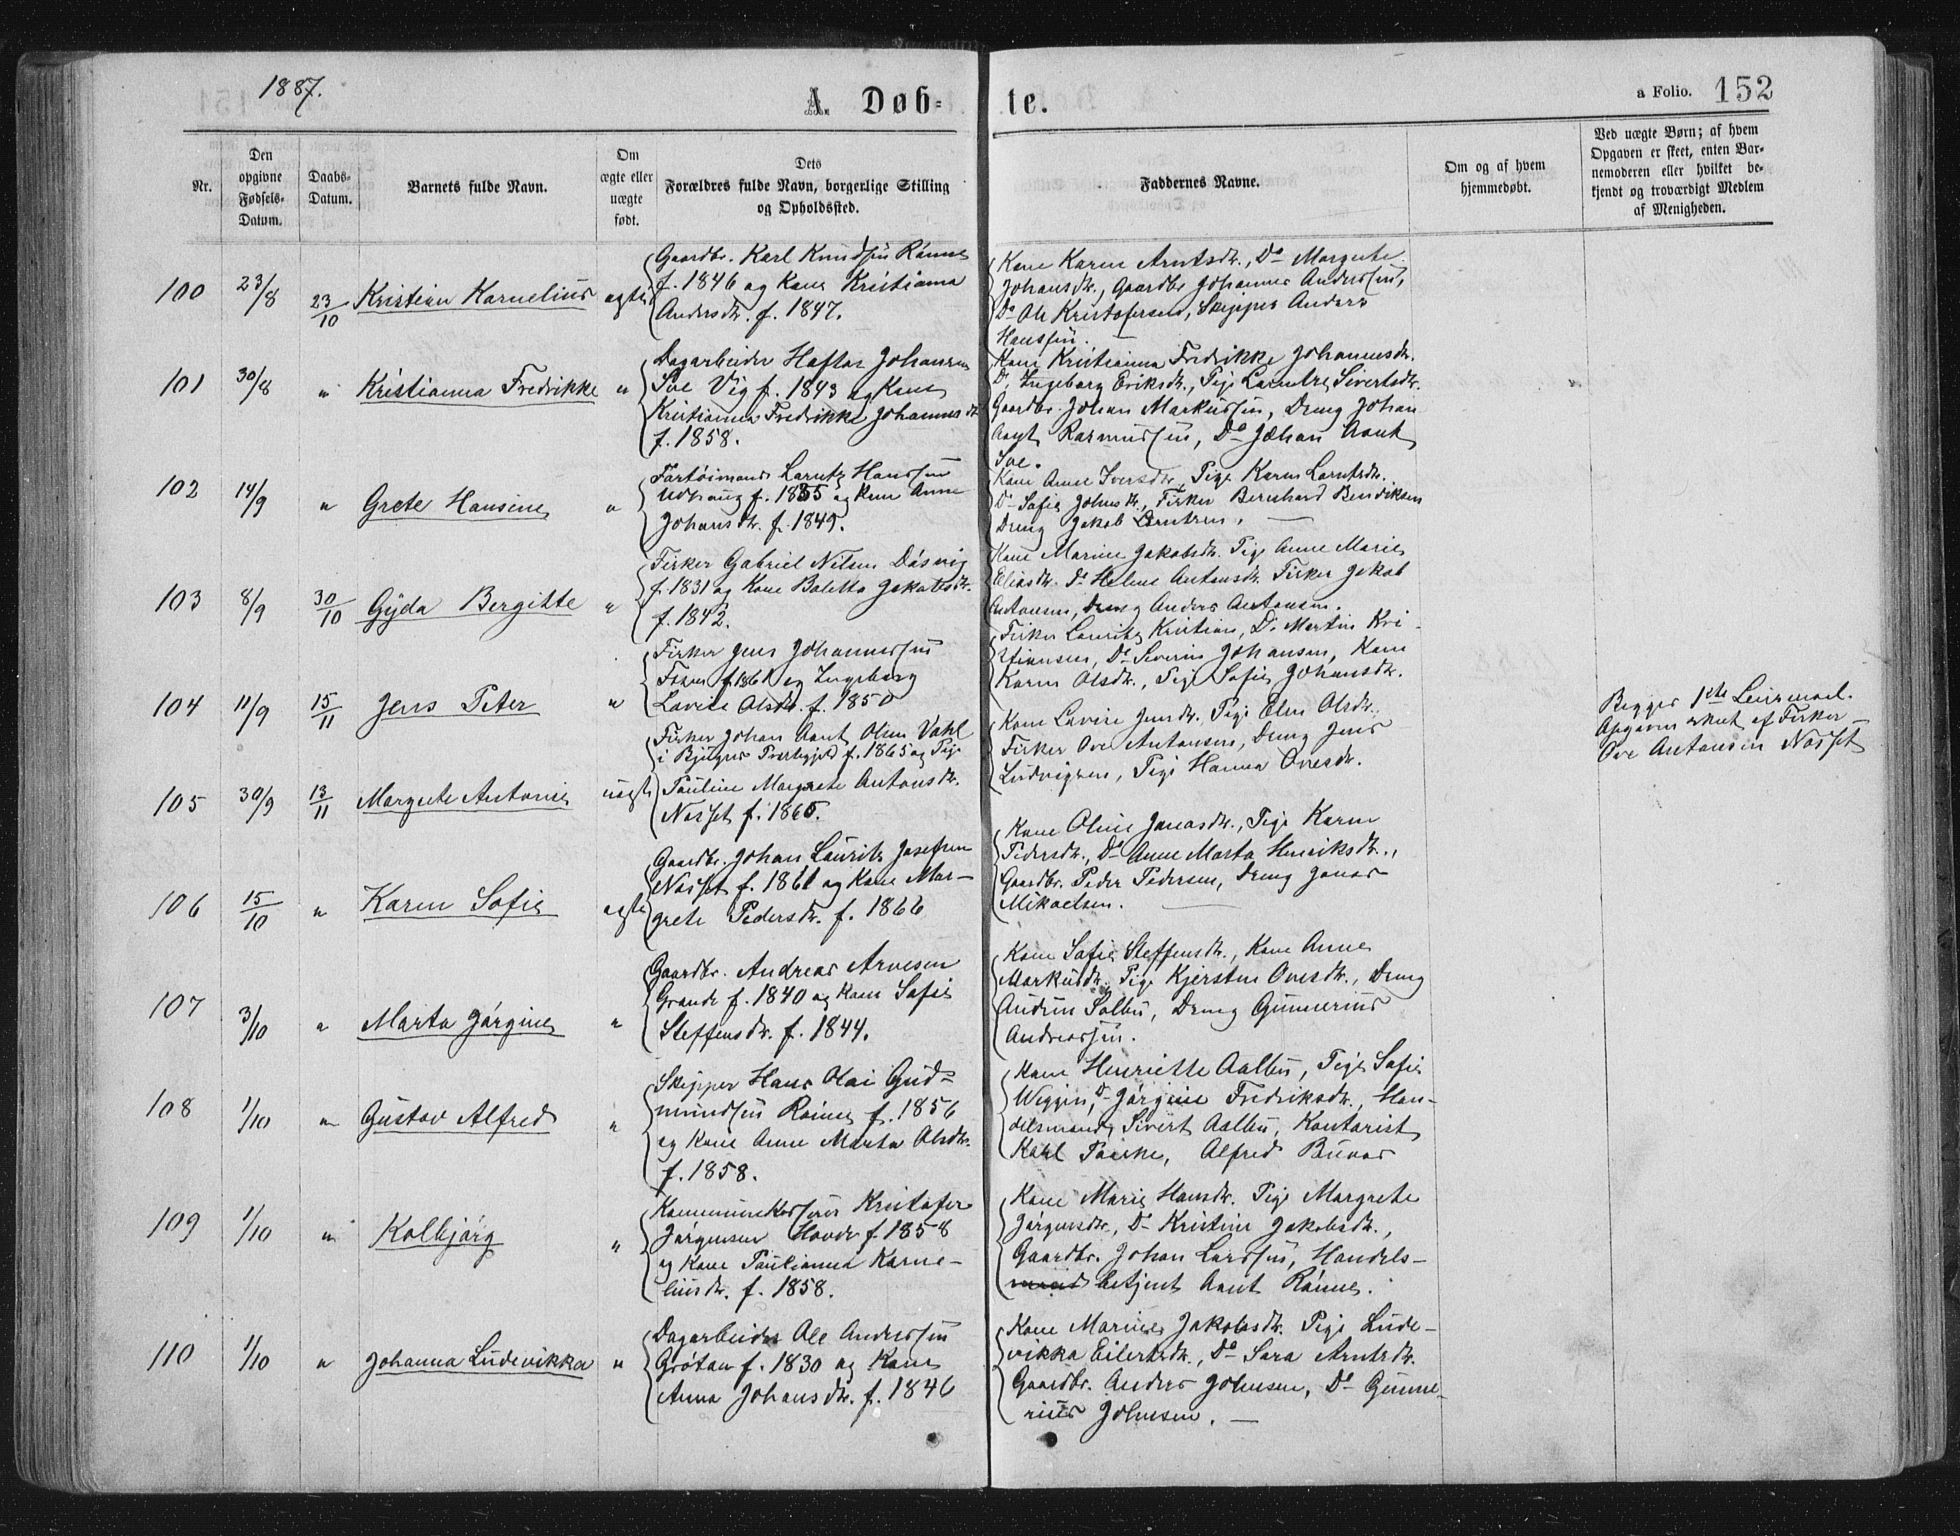 1887.
A. Døb-
te.
a Folio. 152
Nr.
Den opgivne Fødsels-Datum.
Daabs-Datum.
Barnets fulde Navn.
Om ægte eller uægte født.
Dets Forældres fulde Navn, borgerlige Stilling og Opholdssted.
Faddernes Navne.
Om og af hvem hjemmedøbt.
Ved uægte Børn; af hvem Opgaven er skeet, enten Barnemoderen eller hvilket bekjendt og troværdigt Medlem af Menigheden.
100 23/8 23/10 Kristian Kornelius ægte
Gaardbr. Karl Knudsen Rønne
f. 1846 og Kone Kristianna
Andersdtr. f. 1847.
Kone Karen Arntsdtr., Do Margrete
Johansdtr., Gaardbr Johannes Anderssen,
Do Ole Kristofersen, Skipper Anders
Hanssen.
101 30/8 " Kristianna Fredrikke "
Dagarbeider Haftor Johansen
Soe Vig f. 1843 og Kone
Kristianna Fredrikke Johannesdtr
f. 1858.
Kone Kristianna Fredrikke Johannesdtr.
Do Ingeborg Eriksdtr., Pige Lorntze Sivertsdtr.
Gaardbr. Johan Markussen, Dreng Johan
Aagt Rasmussen, Do Johan Arnt
Soe.
102 14/9 " Grete Hansine "
Fartøimand Lorntz Hanssen
Udhaug f. 1835 og Kone Anne
Johansdtr. f. 1849.
Kone Anne Iversdtr., Pige Karen Lorntsdtr.
Do Sofie Johnsdtr., Fisker Bernhard Bendiksen
Dreng Jakob Lorntzen.
103 8/9 30/10 Gyda Bergitte "
Fisker Gabriel Nilsen Døsvig
f. 1831 og Kone Boletta Jakobsdtr.
f. 1842.
Kone Marine Jakobsdtr. Pige Anne Marie
Eliasdtr. Do Helene Antonsdtr. Fisker Jakob
Antonsen, Dreng Anders Antonsen.
104 11/9 15/11 Jens Peter "
Fisker Jens Johannessen
f. 1861 og Ingeborg
Lovise Olsdtr. f. 1850
Fisker Lauritz Kristian, Do Martin Kri-
stiansen, Do Severin Johansen, Kone
Karen Olsdtr., Pige Sofie Johansdtr.
105 30/9 13/11 Margrete Antonie uægte
Fisker Johan Arnt Olsen Vahl
i Bjugns Præstegjeld f. 1865 og Pige
Pauline Margrete Antonsdtr.
Næsset f. 1865.
Kone Lovise Jensdtr. Pige Elen Olsdtr.
Fisker Ove Antonsen, Dreng Jens
Ludvigsen, Pige Hanna Ovesdtr.
Begges 1ste Leiermaal.
Opgaven er skeet af Fisker
Ove Antonsen Næsset
106 15/10 " Karen Sofie ægte
Gaardbr. Johan Lauritz Josefsen
Næsset f. 1861 og Kone Mar-
grete Pedersdtr. f. 1866
Kone Oline Jonasdtr., Pige Karen
Pedersdtr., Do Anne Marta Henriksdtr.,
Gaardbr. Peder Pedersen, Dreng Jonas
Mikaelsen.
107 3/10 " Marta Jørgine "
Gaardbr. Andreas Arnesen
Grande f. 1840 og Kone Sofie
Steffensdtr. f. 1844.
Kone Sofie Steffensdtr., Kone Anne
Markusdtr. Pige Kjersten Ovesdtr., Dreng
Andreas Solbu, Dreng Gunnerius
Andreassen.
108 1/10 " Gustav Alfred "
Skipper Hans Olai Gud-
mundsen Rønne f. 1856
og Kone Anne Marta Olsdtr.
f. 1858.
Kone Henriette Aalbu, Pige Sofie
Wiggen, Do Jørgine Fredriksdtr., Han-
delsmand Sivert Aalbu, Kontorist
Karl Paaske, Alfred Buvar
109 1/10 " Kolbjørg "
Kommunekasserer Kristofer
Jørgensen Hovde f. 1858
og Kone Paulianna Korne-
liusdtr. f. 1858.
Kone Marie Hansdtr. Pige Margrete
Jørgensdtr., Do Kristine Jakobsdtr.,
Gaardbr. Johan Larssen, Handels-
mand betjent Arnt Rønne.
110 1/10 " Johanna Ludevikka "
Dagarbeider Ole Anderssen
Grøtan f. 1830 og Kone
Anna Johansdtr. f. 1846
Kone Marie Jakobsdtr. Pige Lude-
vikka Eilertsdtr., Do Sara Arntsdtr.
Gaardbr. Anders Johnsen, Do Gunne-
rius Johnsen.